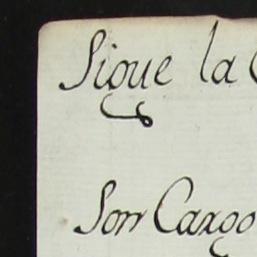 Sigue la
Son Cargo